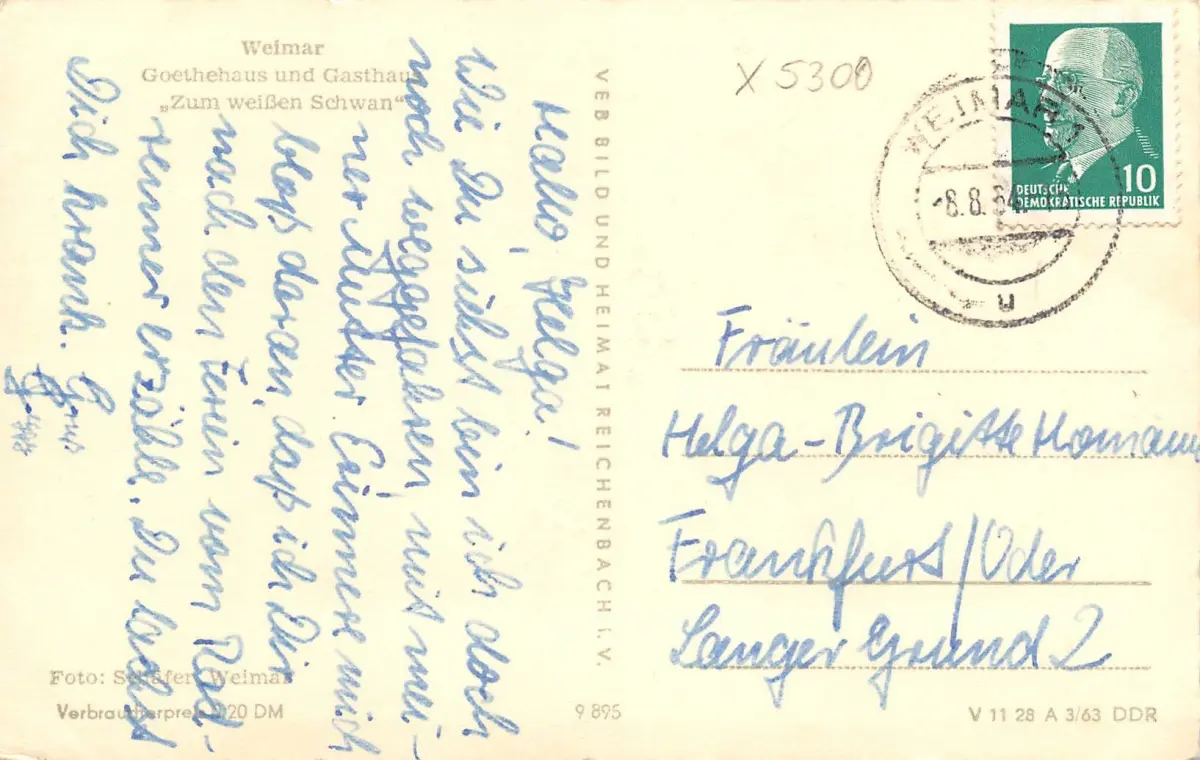 Weimar
Goethehaus und Gasthaus
„Zum weißen Schwan“
Hallo, Helga!
Wie Du siehst bin ich doch
noch weggefahren, mit mei-
ner Mutter. Erinnere mich
bloß daran, daß ich Dir
nach den Ferien vom Rad-
renner erzähle. Du lachst
Dich krank.
VEB BILD UND HEIMAT REICHENBACH I. V.
X 5300
WEIMAR 1
-8.8.64
u
10
DEUTSCHE
DEMOKRATISCHE REPUBLIK
Fräulein
Helga-Brigitte
Frankfurt/Oder
Langer Grund 2
Foto: Schäfer, Weimar
Verbraucherpreis 0,20 DM
9 895
V 11 28 A 3/63 DDR